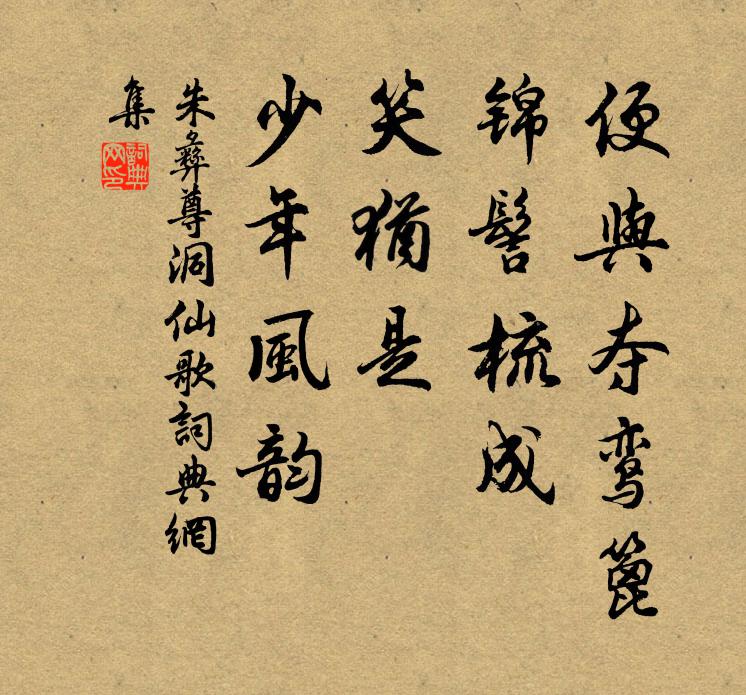 便與夺鸾篦
锦髻梳成
笑猶是
少年風韵
朱彝尊洞仙歌詞典網
集
詞典网印